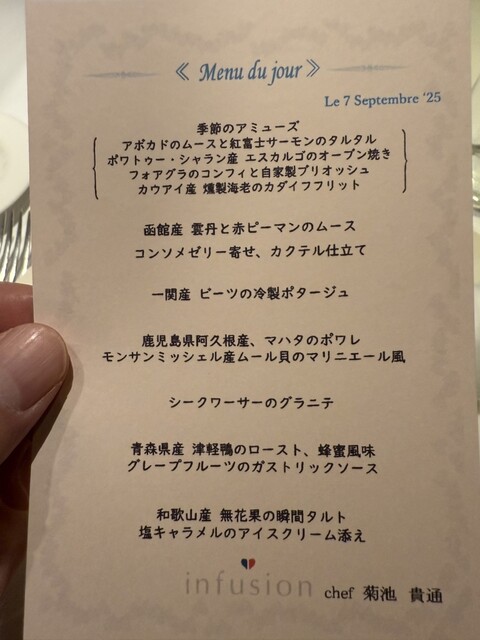 《 Menu du jour 》
Le 7 Septembre '25
季節のアミューズ
アボカドのムースと紅富士サーモンのタルタル
ポワトゥー・シャラン産 エスカルゴのオーブン焼き
フォアグラのコンフィと自家製ブリオッシュ
カウアイ産 燻製海老のカダイフフリット
函館産 雲丹と赤ピーマンのムース
コンソメゼリー寄せ、カクテル仕立て
一関産 ビーツの冷製ポタージュ
鹿児島県阿久根産、マハタのポワレ
モンサンミッシェル産ムール貝のマリニエール風
シークワーサーのグラニテ
青森県産 津軽鴨のロースト、蜂蜜風味
グレープフルーツのガストリックソース
和歌山産 無花果の瞬間タルト
塩キャラメルのアイスクリーム添え
infusion chef 菊池 貴通